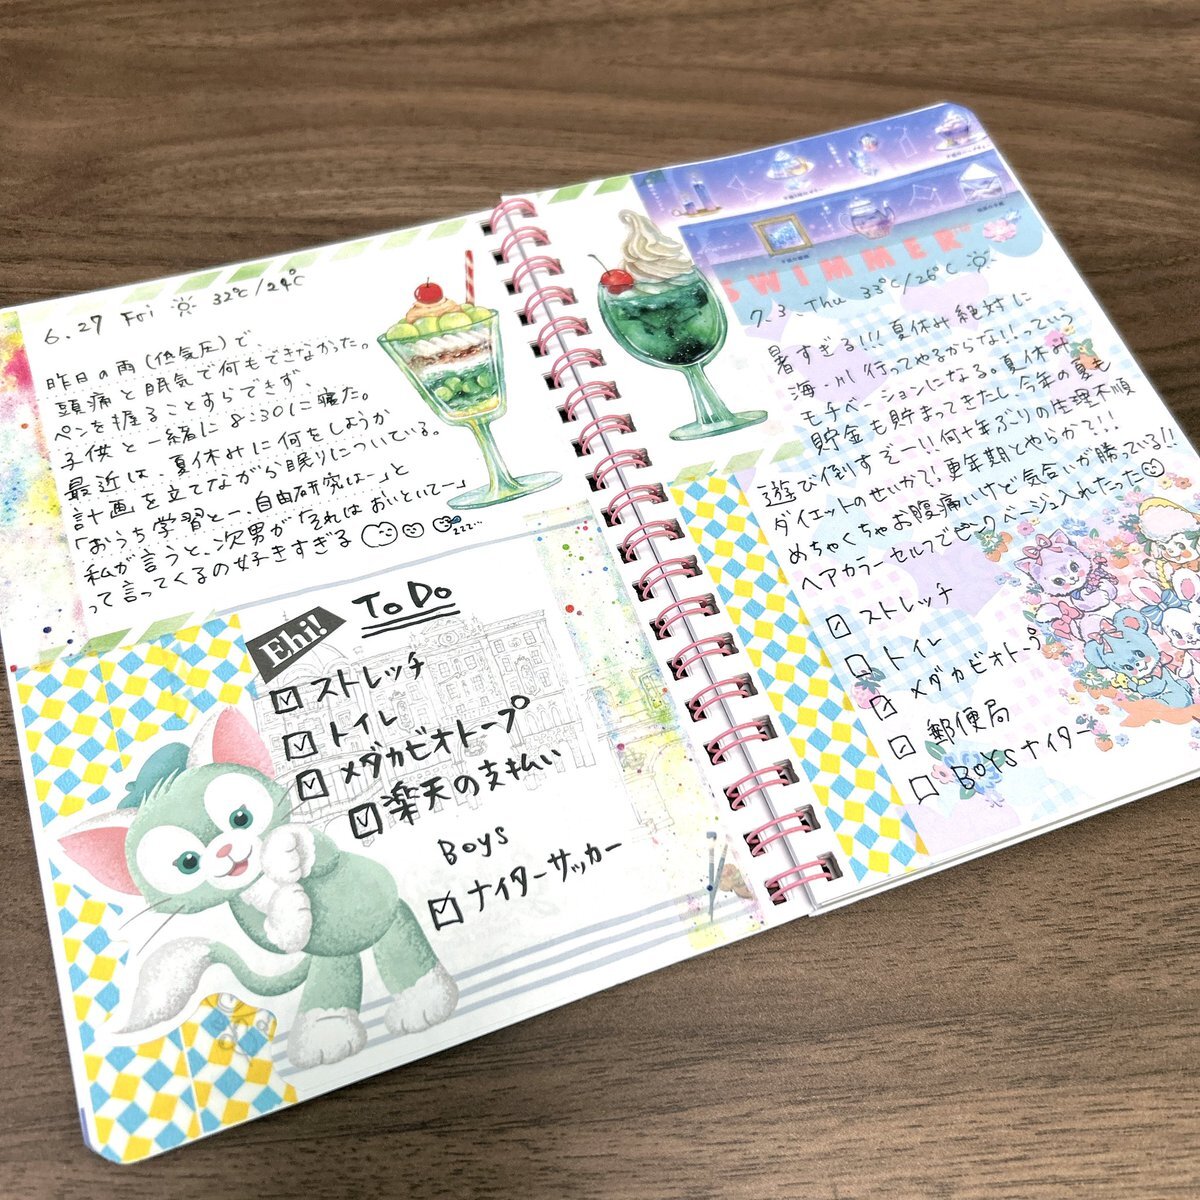 6.27 Fri 32℃/24℃
昨日の雨(低気圧)で、
頭痛と眠気で何もできなかった。
ペンを握ることすらできず、
子供と一緒に8:30に寝た。
最近は、夏休みに何をしようか
計画を立てながら眠りについている。
「おうち学習とー、自由研究はー」と
私が言うと、次男が「それはおいといてー」
って言ってくるの好きすぎる
zzz...
Ehi!
ToDo
ストレッチ
トイレ
メダカビオトープ
楽天の支払い
Boys
ナイターサッカー
SWIMMER
7.3. Thu 33℃/26℃
暑すぎる!!! 夏休み絶対に
海・川行ってやるからな!!っていう
モチベーションになる。夏休み
貯金も貯まってきたし、今年の夏も
遊び倒すぞー!! 何十年ぶりの生理不順
ダイエットのせいか?! 更年期とやらか?!!
めちゃくちゃお腹痛いけど気合いが勝っている!!
ヘアカラーセルフでピンクベージュ入れたった
ストレッチ
トイレ
メダカビオトープ
郵便局
BOYSナイター